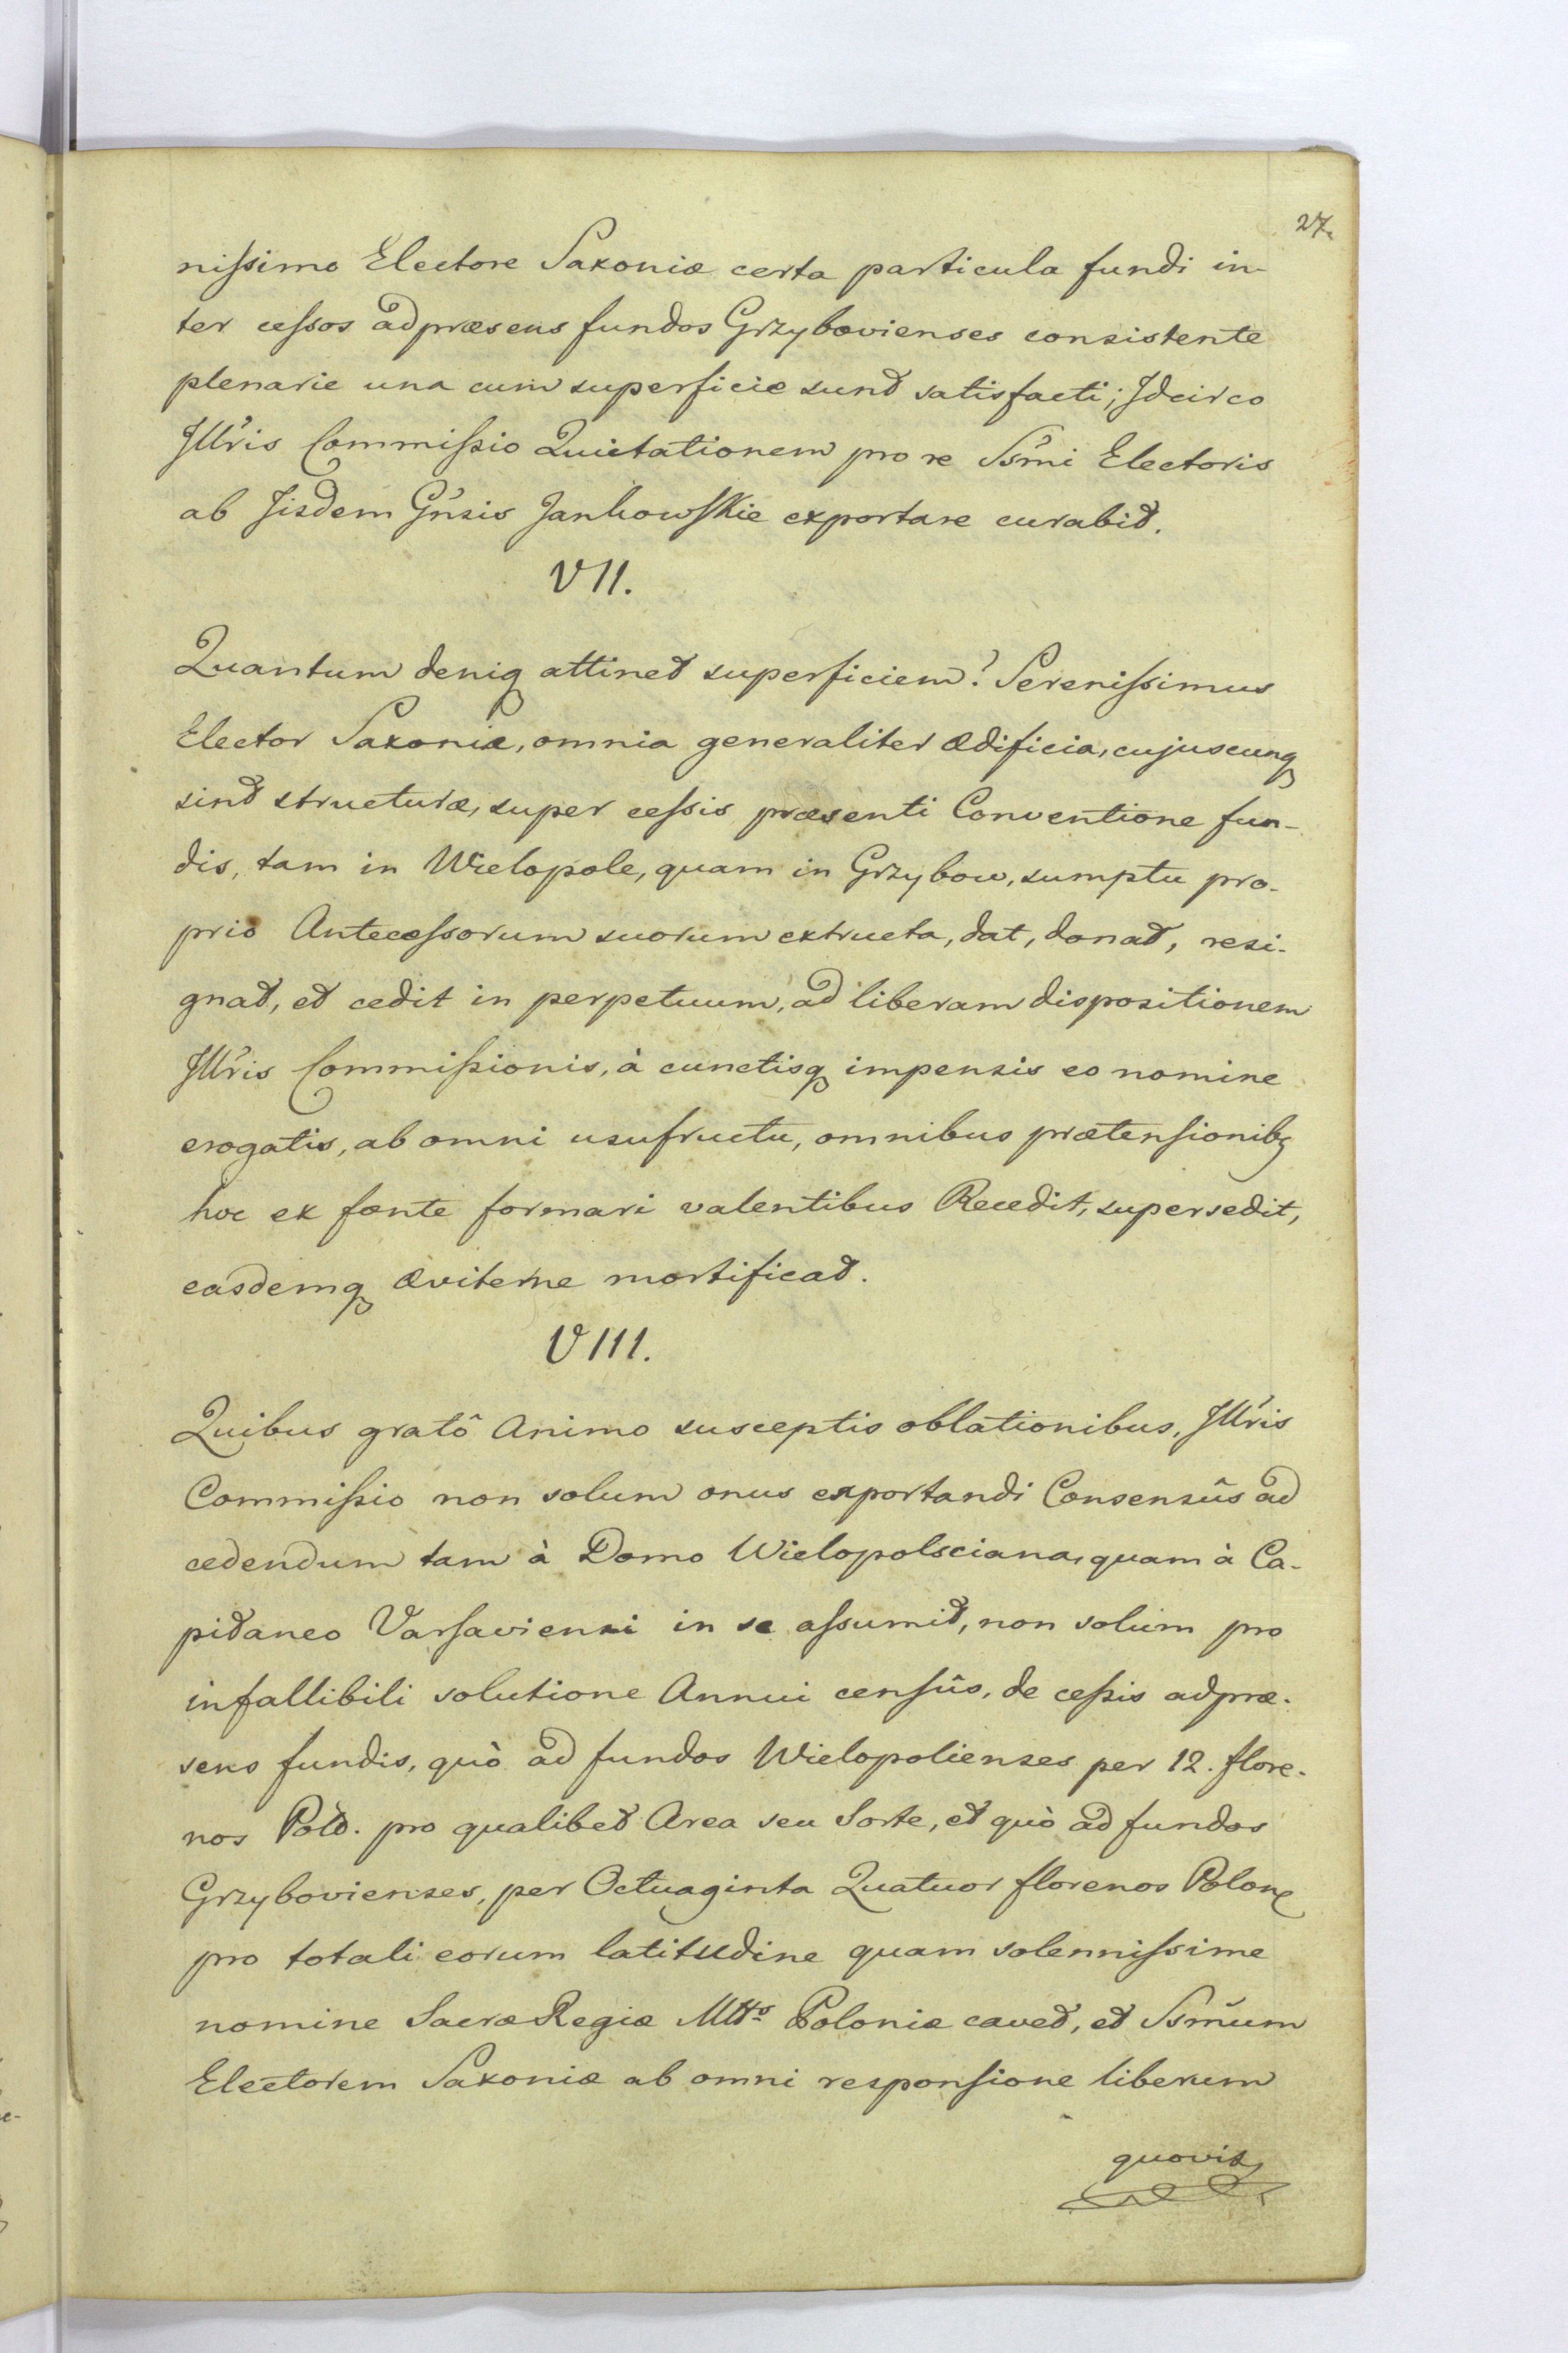 27.
nissimo Electore Saxoniæ certa particula fundi in-
ter cessos adpræsens fundos Grzybovienses consistente
plenarie una cum superficie sunt satisfacti; Idcirco
Illris Commissio Quietationem pro re Ssmi Electoris
ab Iisdem Gnsis Jankowskie exportare curabit.
VII.
Quantum deniq attinet superficiem? Serenissimus
Elector Saxoniæ, omnia generaliter ædificia, cujuscunq
sint structuræ, super cessis præsenti Conventione fun-
dis, tam in Wielopole, quam in Grzybow, sumptu pro-
prio Antecessorum suorum extructa, dat, donat, resi-
gnat, et cedit in perpetuum, ad liberam dispositionem
Illris Commissionis, à cunctisq impensis eo nomine
erogatis, ab omni usufructu, omnibus prætensionibq
hoc ex fonte formari valentibus Recedit, supersedit,
easdemq æviterne mortificat.
VIII.
Quibus gratô Animo susceptis oblationibus, Illris
Commissio non solum onus exportandi Consensûs ad
cedendum tam à Domo Wielopolsciana, quam à Ca-
pitaneo Varsaviensi in se assumit, non solùm pro
infallibili solutione Annui censûs, de cessis adpræ-
sens fundis, quò ad fundos Wielopolienses per 12. flore-
nos Pold. pro qualibet Area seu Sorte, et quò ad fundos
Grzybovienses, per Octuaginta Quatuor florenos Polon
pro totali eorum latitudine quam solennissime
nomine Sacræ Regiæ Mtts Poloniæ cavet, et Ssmum
Electorem Saxoniæ ab omni responsione liberum
quovis